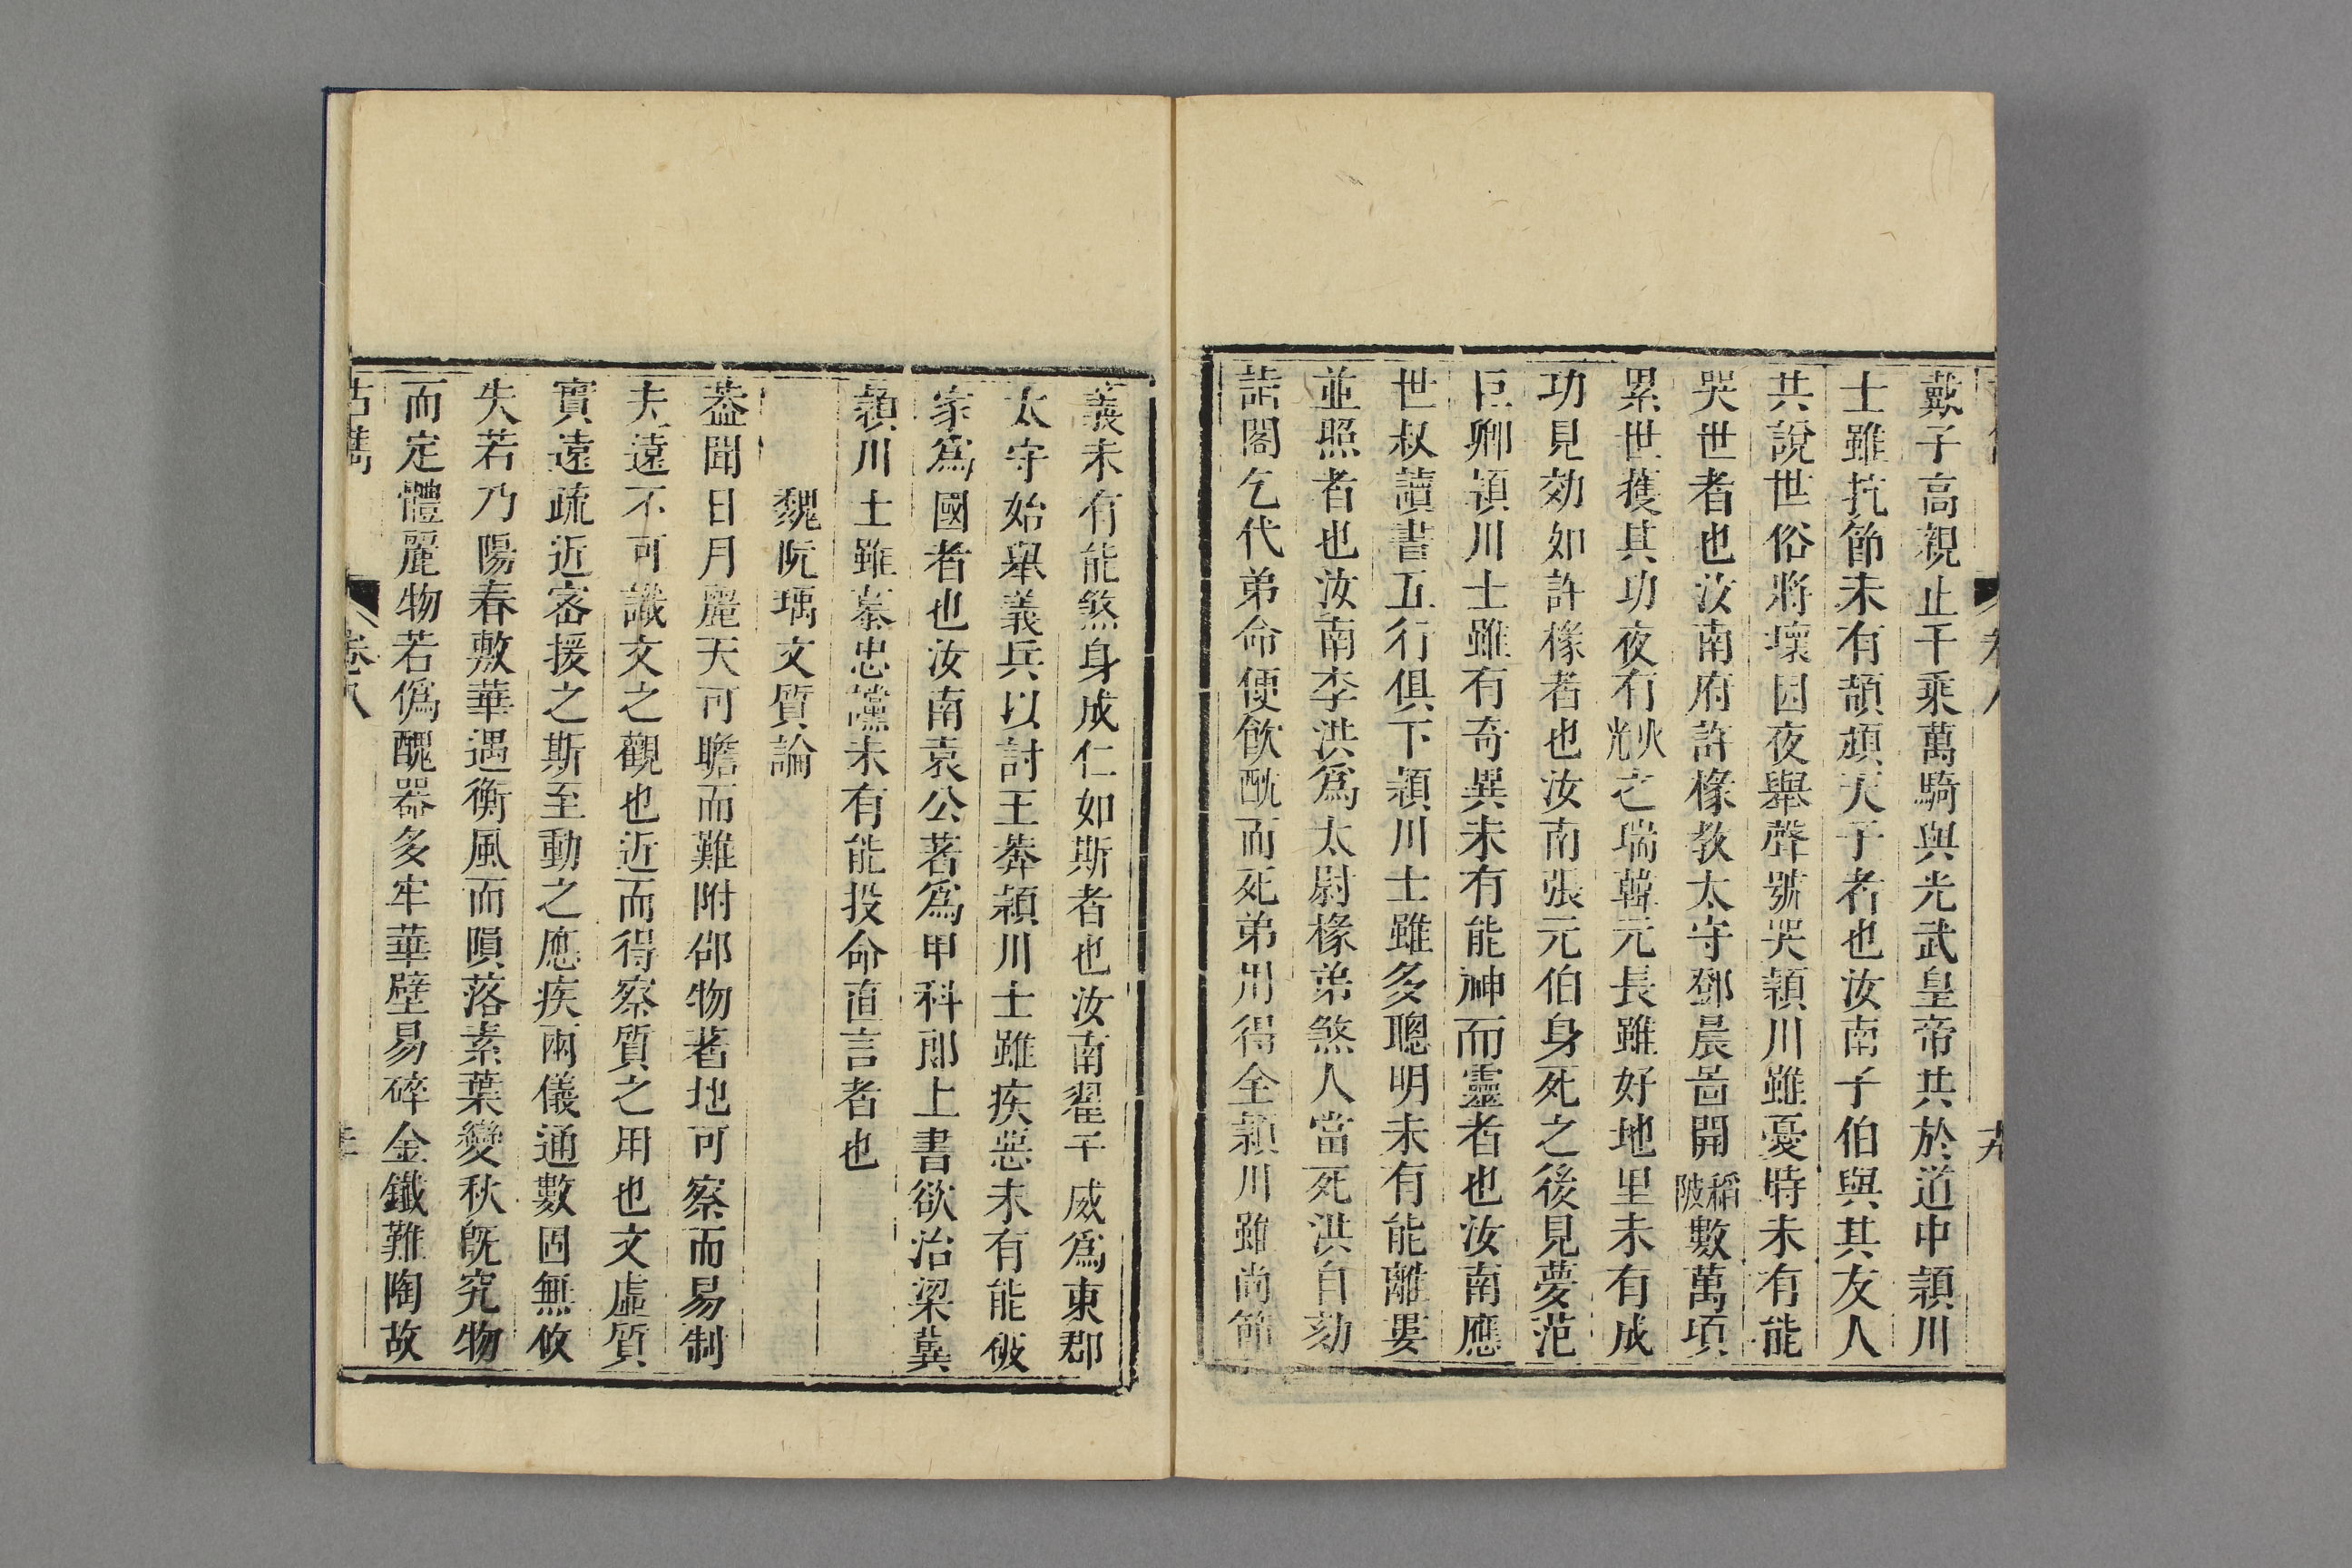 卷八
九
戴子高親止千乘萬騎與光武皇帝共於道中頴川
士雖抗節未有頡頏天子者也汝南子伯與其友人
共說世俗將壞因夜舉聲號哭頴川雖憂時未有能
哭世者也汝南府許椽敎太守鄧晨啚開稻陂數萬頃
累世獲其功夜有火光之瑞韓元長雖好地里未有成
功見効如許椽者也汝南張元伯身死之後見夢范
巨卿頴川士雖有奇異未有能神而靈者也汝南應
世叔讀書五行俱下頴川士雖多聰明未有能離婁
並照者也汝南李洪爲太尉椽弟煞人當死洪自劾
詣閣乞代弟命便飮酖而死弟用得全頴川雖尚節
義未有能煞身成仁如斯者也汝南翟子威爲東郡
太守始舉義兵以討王莾頴川士雖疾惡未有能破
家爲國者也汝南袁公著爲甲科郎上書欲治梁冀
頴川士雖慕忠讜未有能投命直言者也
魏阮瑀文質論
葢聞日月麗天可瞻而難附郤物著地可察而易制
夫遠不可識文之觀也近而得察質之用也文虛質
實遠疏近宻援之斯至動之應疾兩儀通數固無攸
失若乃陽春敷華遇衡風而隕落素葉變秋旣究物
而定體麗物若僞醜器多牢華壁易碎金鐵難陶故
卷八